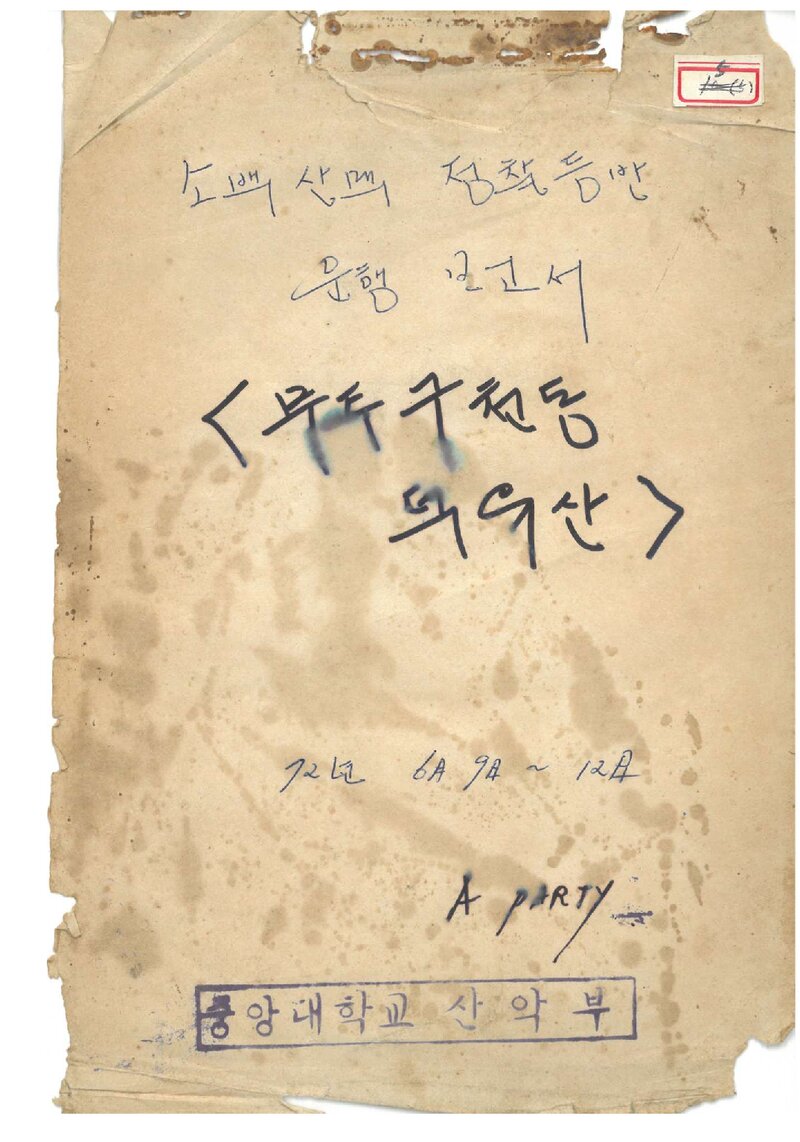 5
소백산맥 정찰등반
운행 보고서
<무주구천동
덕유산>
72년 6月 9日 ~ 12日
A PARTY
중앙대학교 산악부